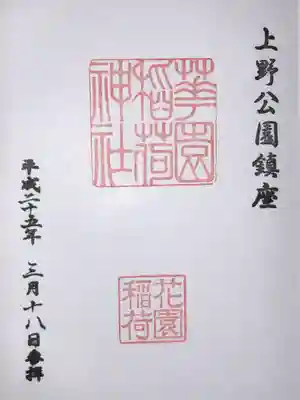 上野公園鎮座
華園稲荷神社
花園稲荷
平成二十五年 三月十八日参拝